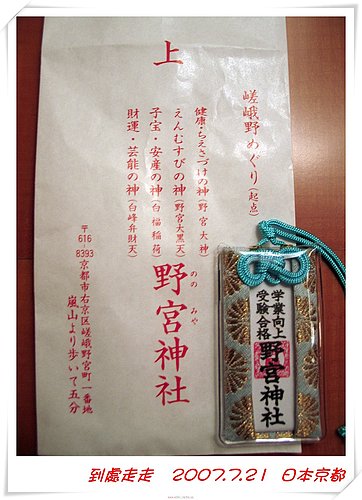 上
嵯峨野めぐり(起点)
健康・ちえさづけの神(野宮大神)
えんむすびの神(野宮大黒天)
子宝・安産の神(白福稲荷)
財運・芸能の神(白峰弁財天)
野宮神社
ののみや
〒616-8393
京都市右京区嵯峨野宮町一番地
嵐山より歩いて五分
学業向上
受験合格
野宮神社
到處走走 2007.7.21 日本京都